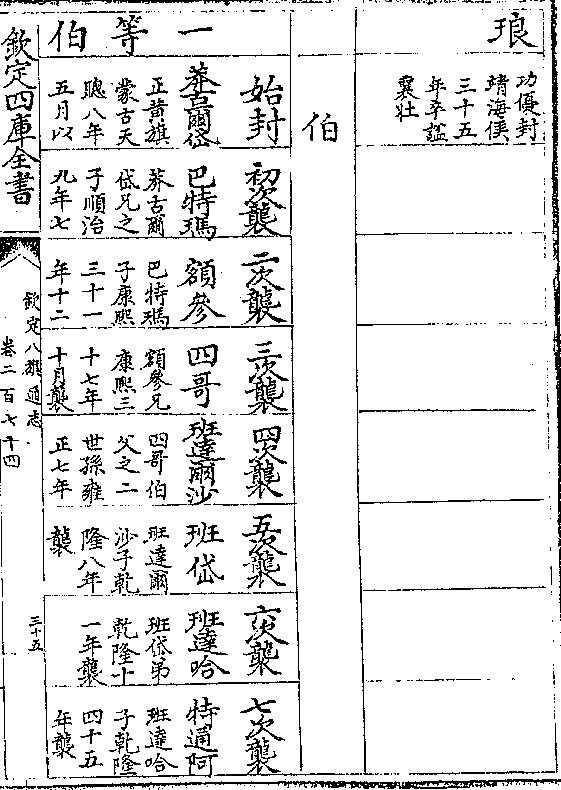 琅
功優封
靖海侯
三十五
年卒諡
襄壯
伯
一等伯
始封
莽古爾岱
正黃旗
蒙古天
聰八年
五月以
初次襲
巴特瑪
莽古爾
岱兄之
子順治
九年七
二次襲
額參
巴特瑪
子康熙
三十一
年十二
三次襲
四哥
額參兄
康熙三
十七年
十月襲
四次襲
班達爾沙
四哥伯
父之二
世孫雍
正七年
五次襲
班岱
班達爾
沙子乾
隆八年
襲
六次襲
班達哈
班岱弟
乾隆十
一年襲
七次襲
特通阿
班達哈
子乾隆
四十五
年襲
欽定四庫全書
欽定八旗通志
卷二百七十四
三十五